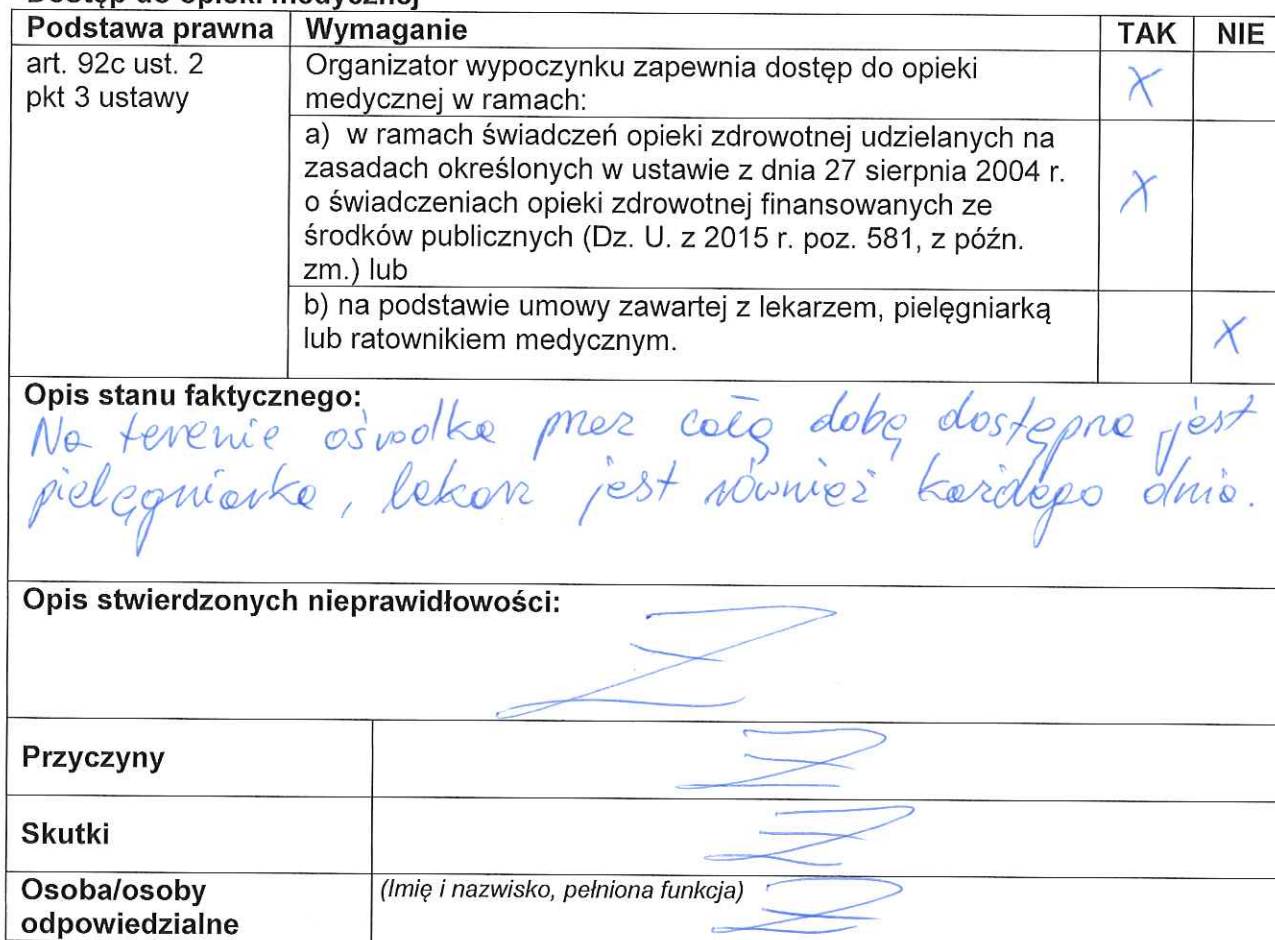 Dostęp do opieki medycznej
Podstawa prawna Wymaganie TAK NIE
art. 92c ust. 2
pkt 3 ustawy
Organizator wypoczynku zapewnia dostęp do opieki
medycznej w ramach: X
a) w ramach świadczeń opieki zdrowotnej udzielanych na
zasadach określonych w ustawie z dnia 27 sierpnia 2004 r.
o świadczeniach opieki zdrowotnej finansowanych ze X
środków publicznych (Dz. U. z 2015 r. poz. 581, z późn.
zm.) lub
b) na podstawie umowy zawartej z lekarzem, pielęgniarką
lub ratownikiem medycznym. X
Opis stanu faktycznego:
Na terenie ośrodka przez całą dobę dostępna jest
pielęgniarka, lekarz jest również każdego dnia.
Opis stwierdzonych nieprawidłowości:
Z
Przyczyny Z
Skutki Z
Osoba/osoby
odpowiedzialne
(Imię i nazwisko, pełniona funkcja) Z